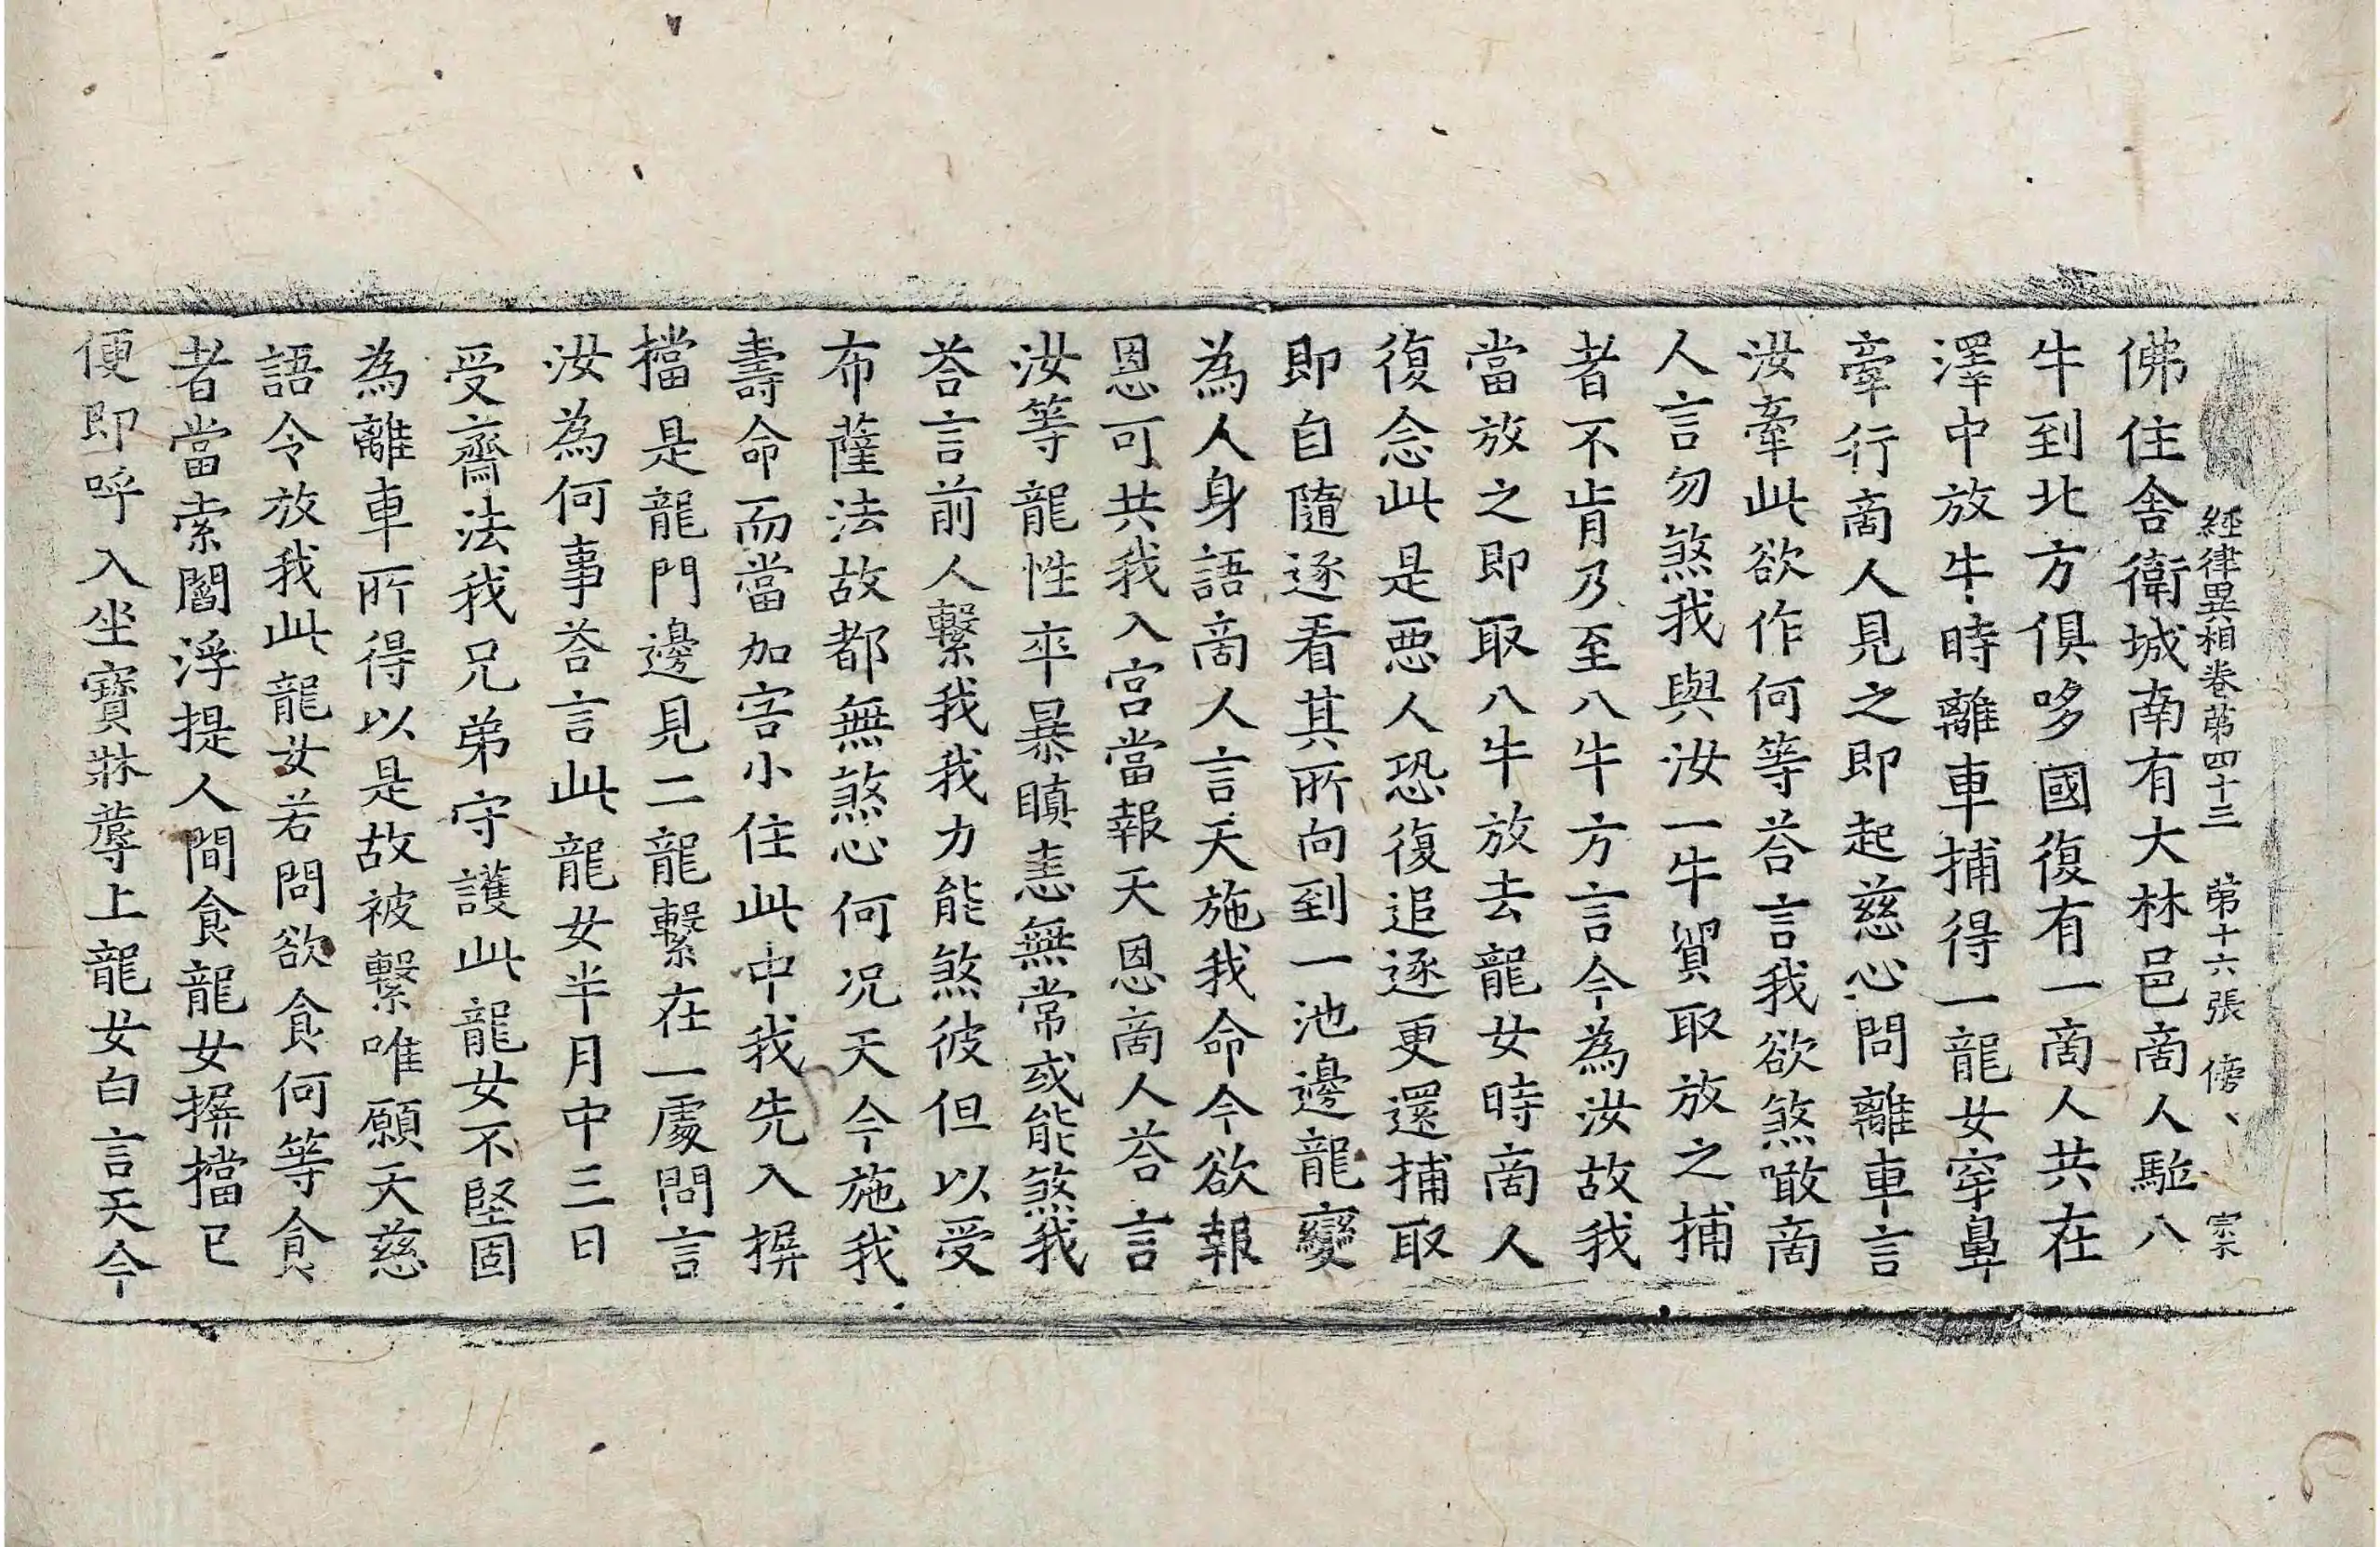 經律異相卷第四十三 第十六張 傍、 宗
佛住舍衛城南有大林邑啇人駈八
牛到北方俱哆國復有一啇人共在
澤中放牛時離車捕得一龍女穿鼻
牽行啇人見之即起慈心問離車言
汝牽此欲作何等荅言我欲煞噉啇
人言勿煞我與汝一牛貿取放之捕
者不肯乃至八牛方言今為汝故我
當放之即取八牛放去龍女時啇人
復念此是惡人恐復追逐更還捕取
即自隨逐看其所向到一池邊龍變
為人身語啇人言天施我命今欲報
恩可共我入宮當報天恩啇人荅言
汝等龍性卒暴瞋恚無常或能煞我
荅言前人繫我我力能煞彼但以受
布薩法故都無煞心何況天今施我
壽命而當加害小住此中我先入摒
擋是龍門邊見二龍繫在一處問言
汝為何事荅言此龍女半月中三日
受齋法我兄弟守護此龍女不堅固
為離車所得以是故被繫唯願天慈
語令放我此龍女若問欲食何等食
者當索閻浮提人間食龍女摒擋已
便即呼入坐寶牀蓐上龍女白言天今